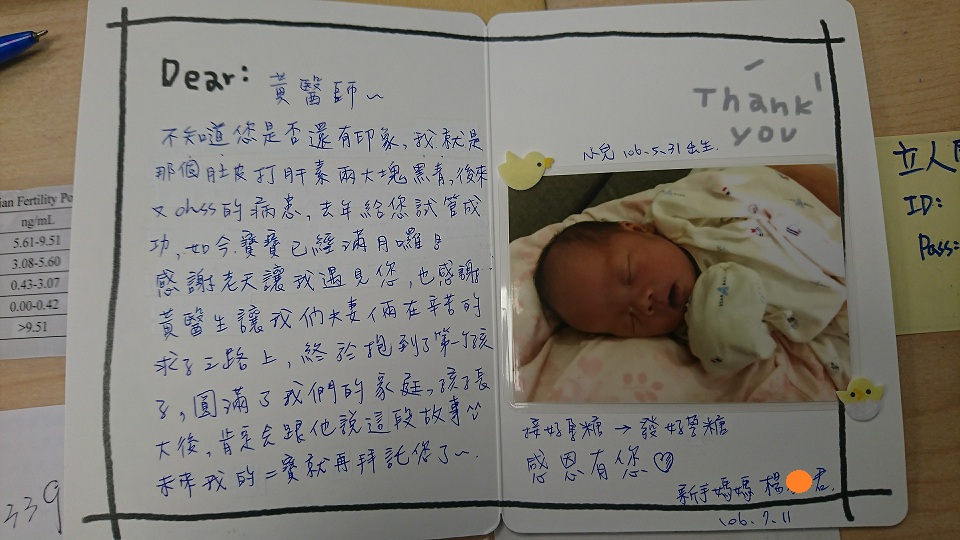 Dear: 黃醫師~
不知道您是否還有印象,我就是
那個肚皮打肝素兩大塊黑青,後來
又ohss的病患,去年給您試管成
功,如今寶寶已經滿月囉!
感謝老天讓我遇見您,也感謝
黃醫生讓我們夫妻倆在辛苦的
求子之路上,終於抱到了第一個孩
子,圓滿了我們的家庭,孩子長
大後,肯定會跟他說這段故事
未來我的二寶就再拜託您了~.
Thank you
小兒 106.5.31 出生.
接好孕糖 → 發好孕糖
感恩有您♡
新手媽媽 楊 君.
106.7.11
ian Fertility Po
ng/mL
5.61-9.51
3.08-5.60
0.43-3.07
0.00-0.42
>9.51
339
立人
ID:
Pass: